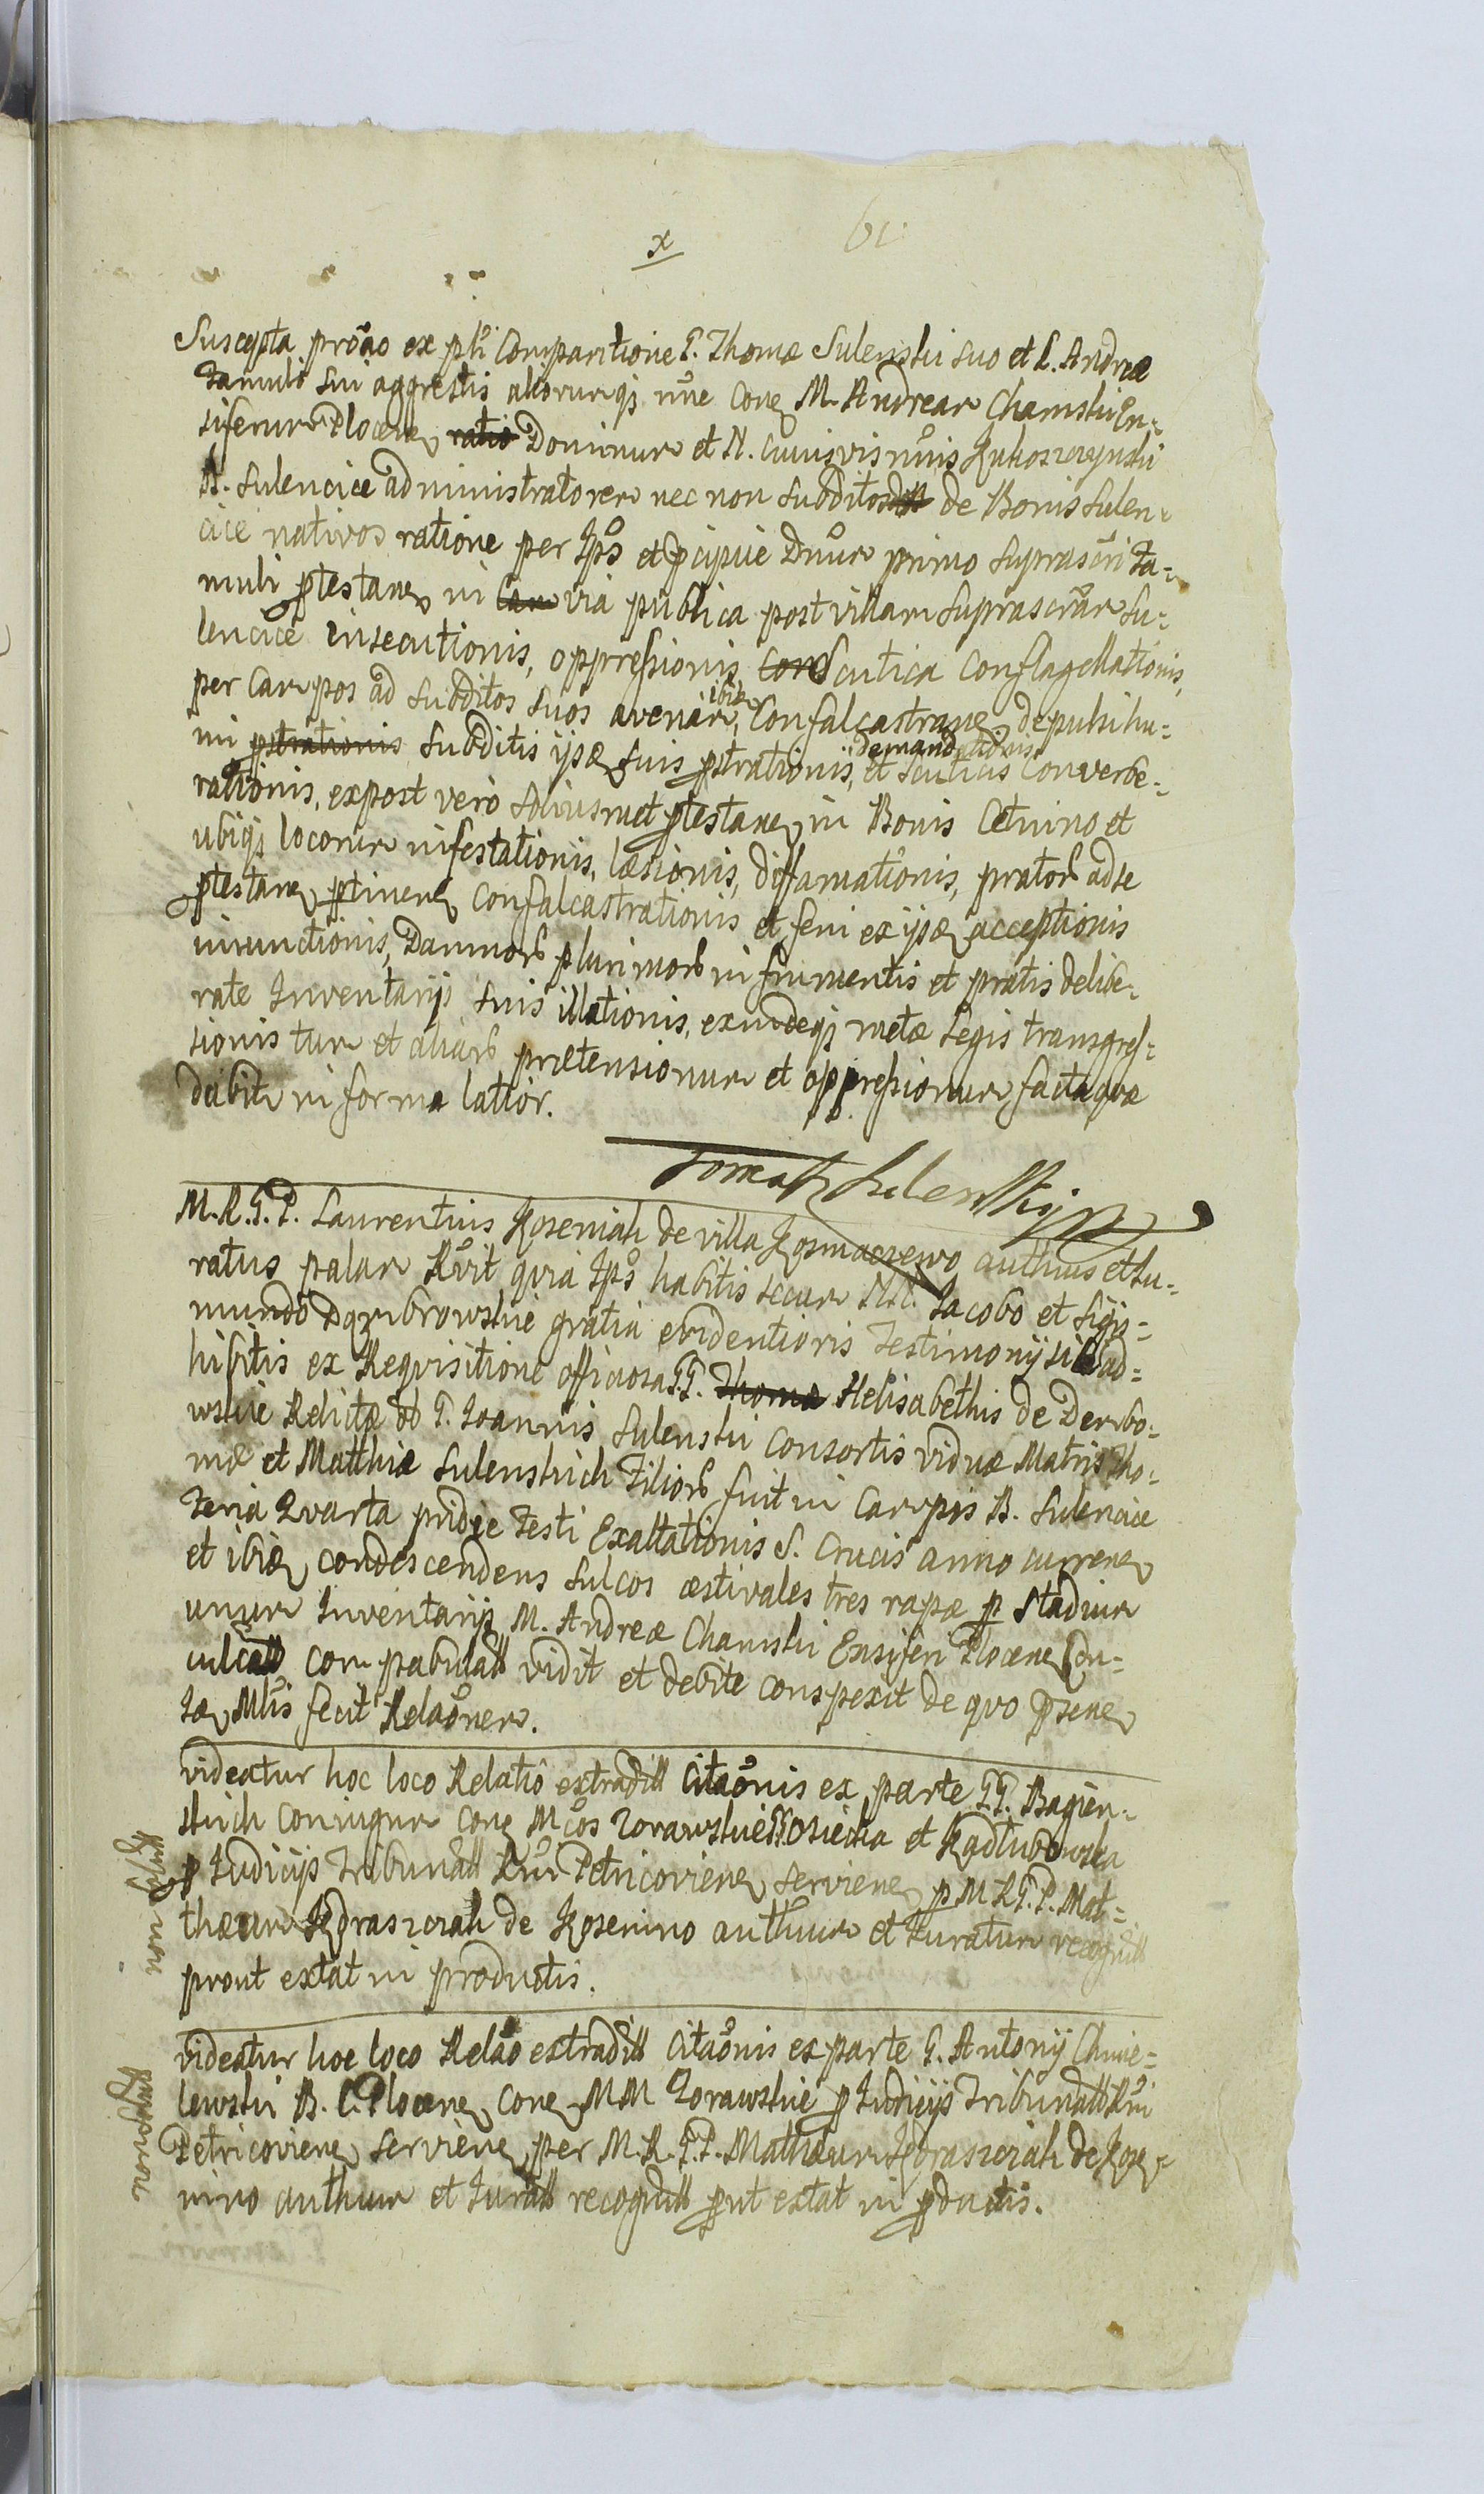 x
Suscepta proãõ ex pℏi Comparitione G. Thomæ Sulenski suo et L. Andreæ
Famuli sui aggrestis aliorumqȝ nõie Conȩ M. Andream Chamski En-
siferum Plocenȩ Dominum et N. cuiusvis nõinis Kukoszczynski
B. Sulencice administratorem nec non subditos de Bonis Sulen-
cice nativos ratione per Ipõs et p̱cipue Dnõum primo suprascri fa-
muli p̱testanȩ in via publica post villam suprascrãm Su-
lencice insecutionis, oppressionis, scutica conflagellationis,
per Campos ad subditos suos avenam ibidȩ, Confalcastranȩ depulsi hu-
mi subditis ijsdȩ suis p̱strationis, demandationis et scuticis Converbe-
rationis, expost vero solius met p̱testanȩ in Bonis Cetnino et
ubiqȝ locorum infestationis, læsionis, diffamationis, prator ad se
p̱testanȩ p̱tinenȩ Confalcastrationis et feni ex ijsdȩ acceptionis
iniunctionis, Damnor plurimor in frumentis et pratis delibe-
rate Inventarijs suis illationis, exindeqȝ metæ Legis transgres-
sionis tum et aliar prætensionum et oppressionum, facta quæ
dabit in forma latior.
Tomasz Sulenski mp
M. R. G. P. Laurentius Koseniak de villa Kosmaczewo authus et Iu-
ratus palam Rõvit quia Ipõs habitis secum NN. Iacobo et Sigis-
mundo Dąmbrowskie gratia evidentioris Testimonij sibi ad-
hibitis ex Requisitione officiosa GG. Helisabethis de Dembo-
wskie Relictæ ol G. Ioannis Sulenski Consortis viduæ Matris Tho-
mæ et Matthiæ Sulenskich Filior fuit in Campis B. Sulencice
Feria Quarta pridie Festi Exaltationis S. Crucis anno currenȩ
et ibidȩ condescendens Sulcos æstivales tres rapæ p̱ Stadium
unum Inventarijs M. Andreæ Chamski Ensiferi Plocenȩ Con-
culcatt compabulatt vidit et debite conspexit de quo p̱senȩ
Iaȩ Mtis fecit Relaõnem.
videatur hoc loco Relatio extraditt Citaõnis ex parte GG. Bagien-
skich Coniugum Conȩ Mcos Zorawskie Osiecka et Kadłubowska
p̱ Iudicijs Tribunatt Rni Petricovienȩ servienȩ p̱ M R G. P. Mat-
thæum Jędraszczak de Kosenino authum et Iuratum recognitt
prout extat in productis.
videatur hoc loco Relaõ extraditt Citaõnis ex parte G. Antonij Chmie-
lewski B. C. Plocenȩ Conȩ MM Zorawskie p̱ Iudicijs Tribunatt Rni
Petricovienȩ servienȩ per M. R. G. P. Matthæum Jędraszczak de Kose-
nino authum et Iuratt recognitt p̱ut extat in p̱ductis.